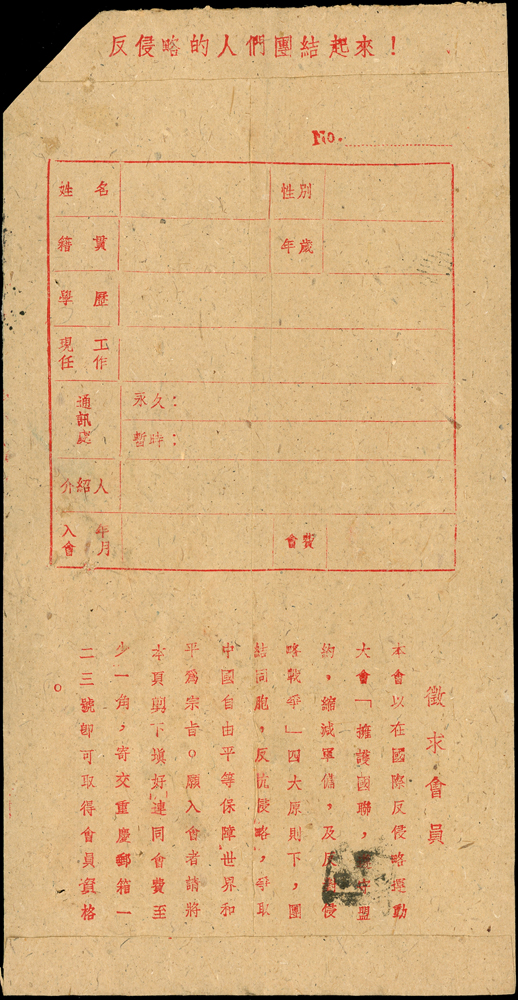 反侵略的人們團結起來！
No.
姓名
性別
籍貫
年歲
學歷
現任工作
通訊處
永久：
暫時：
介紹人
入會年月
會費
徵求會員
本會以在國際反侵略運動
大會「擁護國聯，守盟
約，縮減軍備，及反侵
略戰爭」四大原則下，團
結同胞，反抗侵略，爭取
中國自由平等保障世界和
平爲宗旨。願入會者請將
本頁剪下塡好連同會費至
少一角，寄交重慶郵箱一
二三號卽可取得會員資格
。